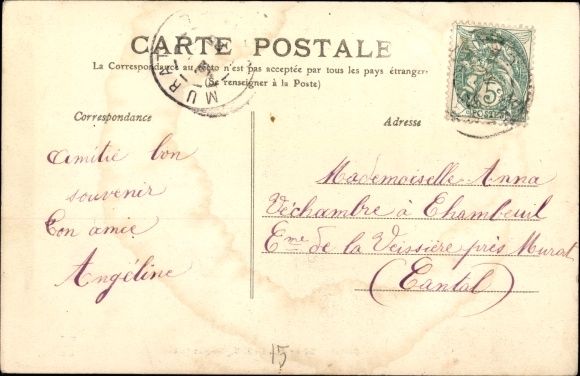 CARTE POSTALE
La Correspondance au recto n'est pas acceptée par tous les pays étranger-
(Se renseigner à la Poste)
MURAT
5c
POSTES
Correspondance
Adresse
Amitié bon
souvenir
Ton amie
Angéline
Mademoiselle Anna
Véchambre à Chambeuil
Cne de la Veissière près Murat
(Cantal)
15